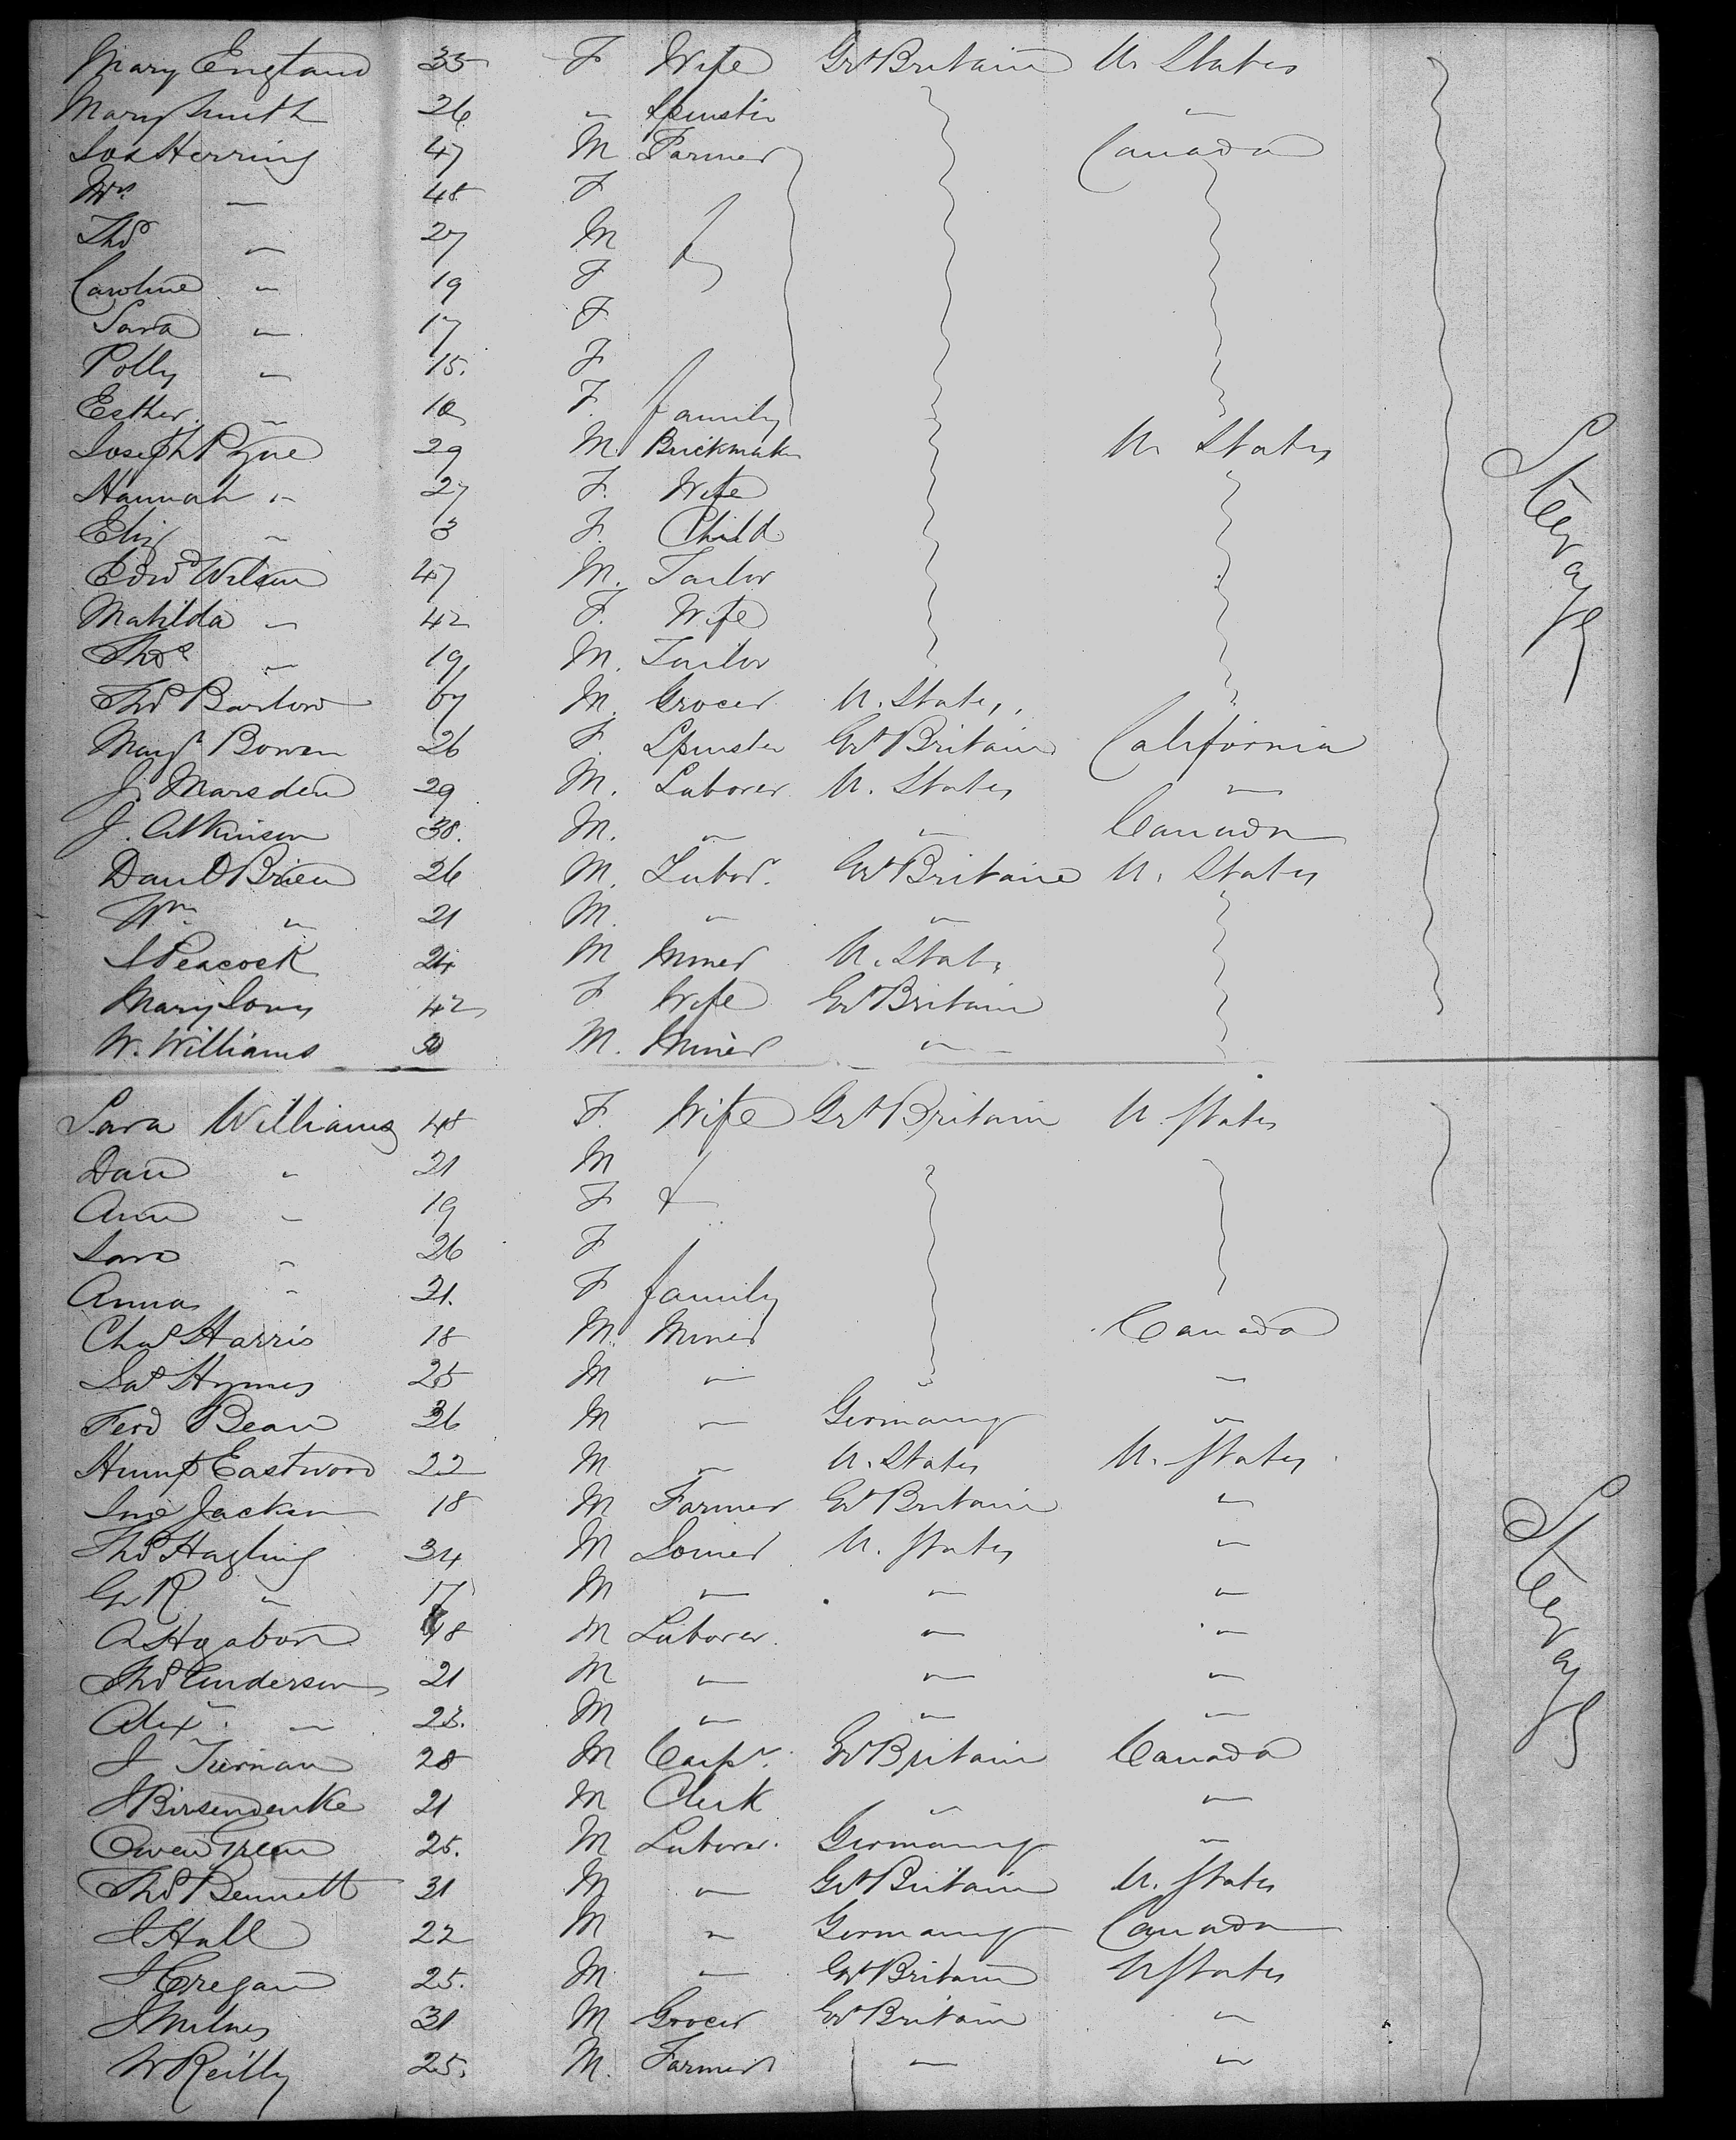 Mary England 35 F Wife Gt Britain U. States
Mary Smith 26 " Spinster "
Jos Herring 47 M Farmer Canada
Mrs " 48 F
Thos " 27 M
Caroline " 19 F
Sara " 17 F
Polly " 15. F
Esther " 10 F. family
Joseph Pyne 29 M. Brickmaker U. States
Hannah " 27 F. Wife
Eliz " 3 F. Child
Edwd Wilson 47 M. Tailor
Matilda " 42 F. Wife
Thos " 19 M. Tailor
Thos Barlow 67 M. Grocer U. States
Margt Bowen 26 F. Spinster Gt Britain California
J. Marsden 29 M. Laborer U. States "
J. Atkinson 38. M. " " Canada
Danl OBrien 26 M. Labor. Gt Britain U. States
Wm " 21 M. " "
Peacock 24 M Miner U. States
Mary 42 F Wife Gt Britain
W. Williams M. Miner "
Sara Williams 48 F. Wife Gt Britain U. States
Dan " 21 M
Ann " 19 F &
Sara " 26 F
Anna " 21. F family
Chas Harris 18 M. Miner Canada
Hymes 25 M " "
Ferd Bean 36 M " Germany "
Humph Eastwood 22 M " U. States U. States
Jno Jackson 18 M Farmer Gt Britain "
Thos Hazling 34 M Joiner U. States "
Geo R. " 17 M " " "
48 M Laborer. " "
Thos Anderson 21 M " " "
Alexr. " 23. M " " "
J Tiernan 28 M Carpr. Gt Britain Canada
21 M Clerk " "
Owen Green 25. M Laborer. Germany "
Thos Bennett 31 M " Gt Britain U. States
J Hall 22 M " Germany Canada
J Cregan 25. M " Gt Britain U States
J Milnes 31 M Grocer Gt Britain "
W Reilly 25. M. Farmer " "
Steerage
Steerage